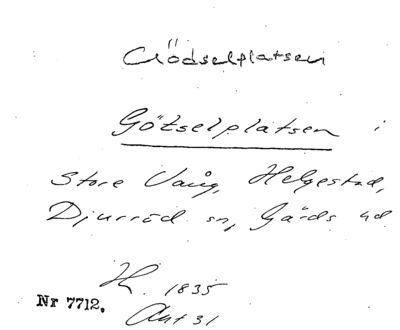 Gödselplatsen
Götselplatsen i
Store Vång, Helgestad,
Djurröd sn, Gärds hd
H. 1835
Akt 31
Nr 7712.